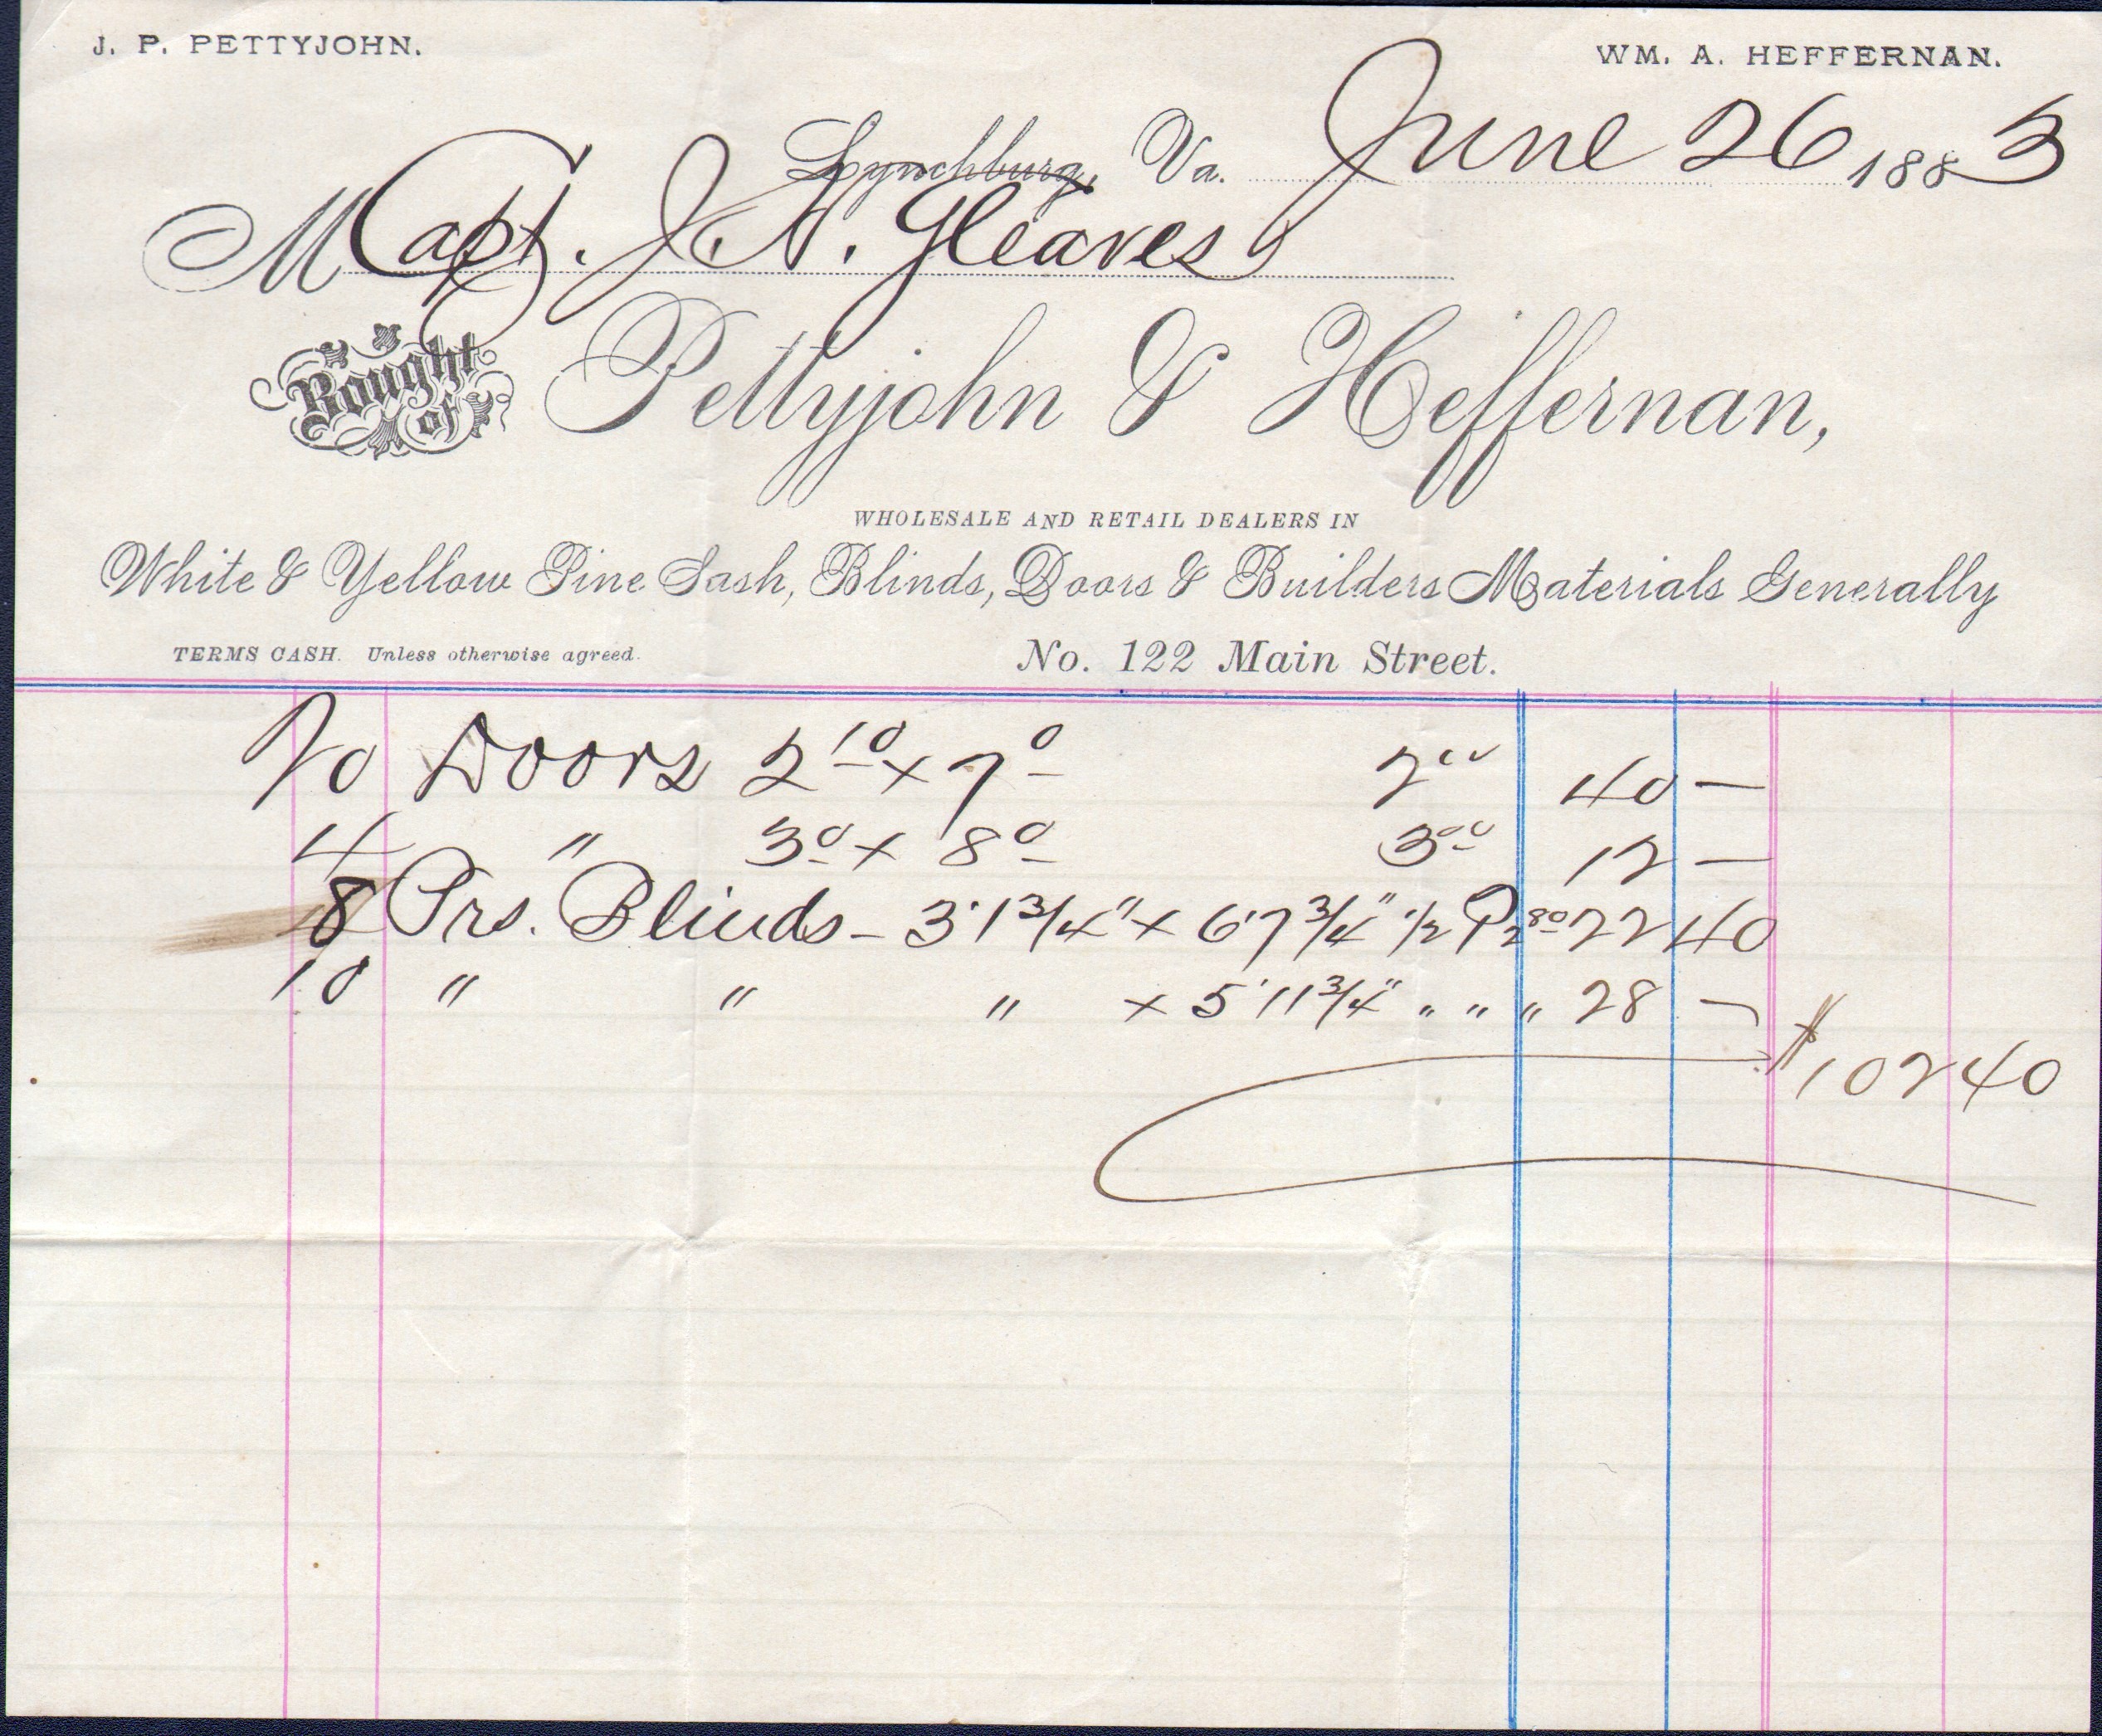 J. P. PETTYJOHN. WM. A. HEFFERNAN.
Lynchburg, Va. June 26 1883
M Capt. J. N. Gleaves
Bought of Pettyjohn & Heffernan,
WHOLESALE AND RETAIL DEALERS IN
White & Yellow Pine Sash, Blinds, Doors & Builders Materials Generally
TERMS CASH. Unless otherwise agreed. No. 122 Main Street.
20 Doors 2 10 x 7 0 2 00 40 —
4 " 3 0 x 8 0 3 00 12 —
8 Prs. Blinds - 3' 1 3/4" x 6' 7 3/4" 1/2 P 2 80 22 40
10 " " " x 5' 11 3/4" " " " 28 —
$ 102 40